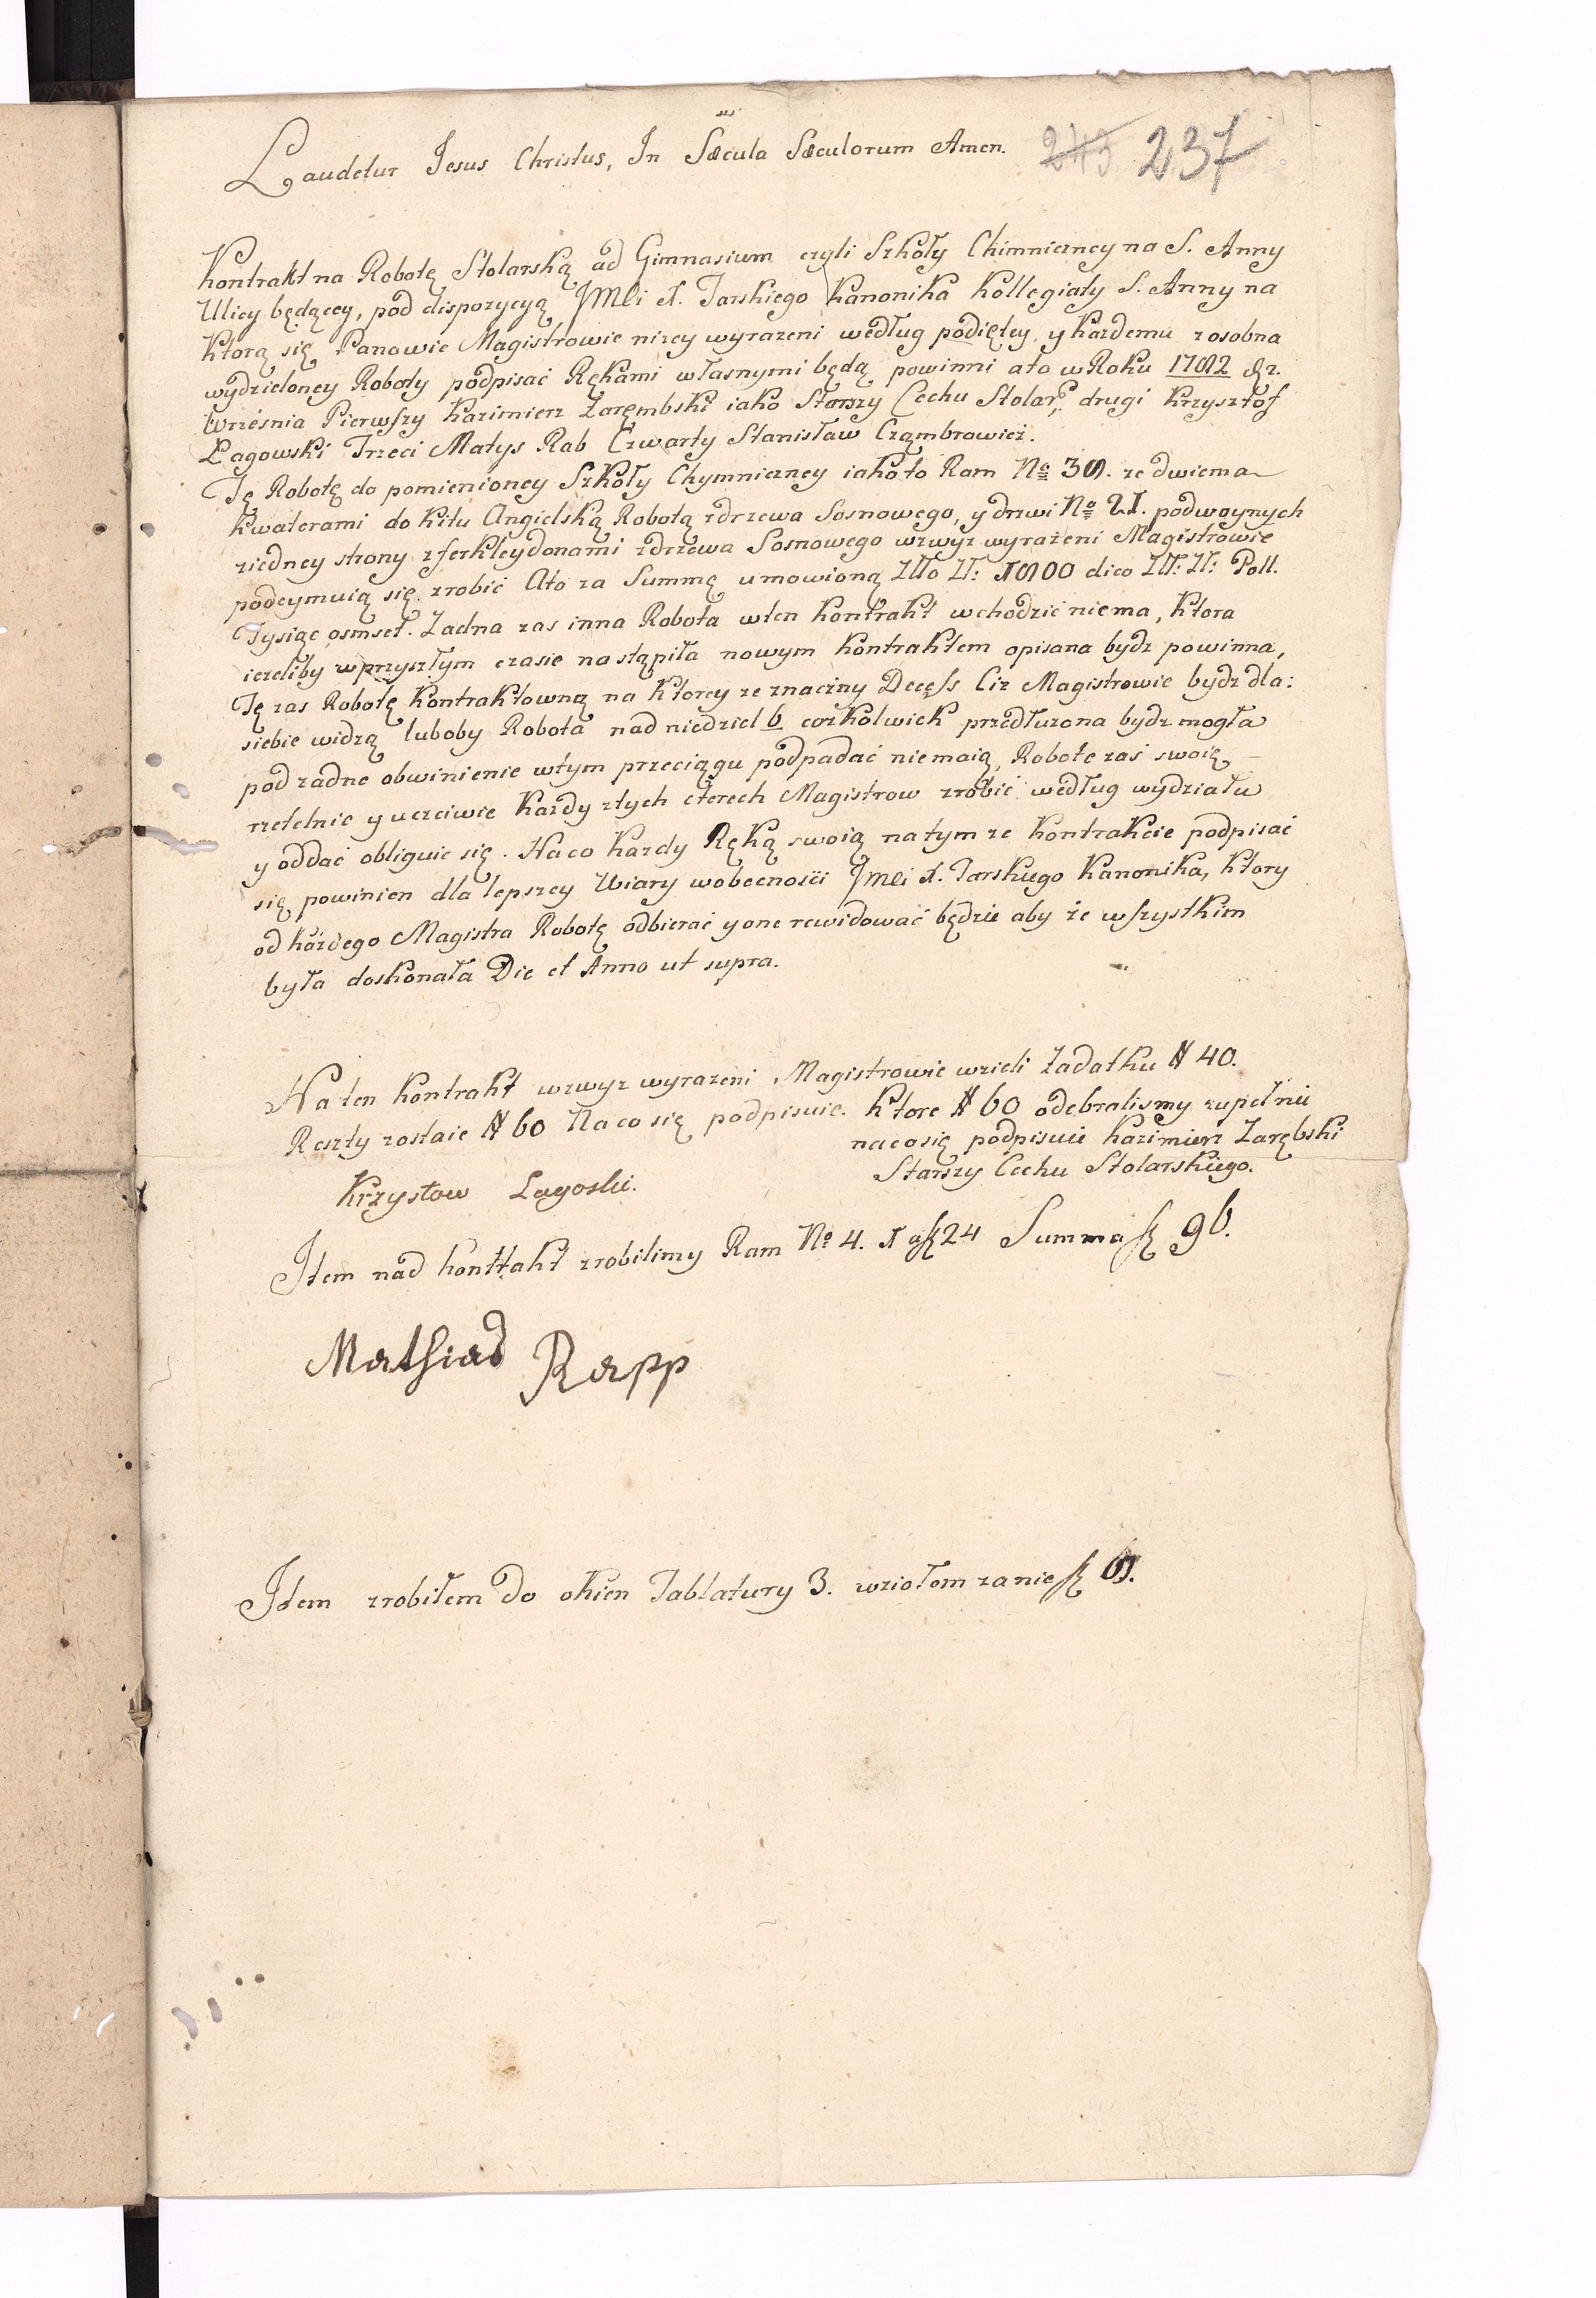 Laudetur Jesus Christus, In Sæcula Sæculorum Amen. 243 237
Kontrakt na Robotę Stolarską ad Gimnasium czyli Szkoły Chimniczney na S. Anny
Ulicy będącey, pod disporycyą JMCi X. Jarskiego Kanonika Kollegiaty S. Anny na
Ktorą się Panowie Magistrowie nizey wyrazeni według podiętey y kazdemu zosobna
wydzieloney Roboty podpisać Rękami własnymi będą powinni ato w Roku 1782 d. 2.
Września Pierwszy Kazimierz Zarębski iako Starszy Cechu Stolar: drugi Krzysztof
Łagowski Trzeci Matys Rab Czwarty Stanisław Cząmbrowicz.
Tę Robotę do pomienioney Szkoły Chymniczney iako to Ram No 38. ze dwiema
Kwaterami do Kitu Angielską Robotą zdrzewa Sosnowego, y drzwi No 21. podwoynych
ziedney strony zferkleydonami zdrzewa Sosnowego wzwyz wyrażeni Magistrowie
podeymuią się zrobić Ato za Summę umowioną Zlło Zł: 1800 dico Złł: Zł: Poll.
Tysiąc osmset. Zadna zas inna Robota wten Kontrakt wchodzić niema, ktora
iezeliby wprzyszłym czasie nastąpiła nowym Kontraktem opisana bydz powinna,
Tę zas Robotę Kontraktowną na Ktorey ze znaczny Decess Ciz Magistrowie bydz dla:
siebie widzą luboby Robota nad niedziel 6 cozkolwiek przedłuzona bydz mogła
pod zadne obwinienie wtym przeciągu podpadać niemaią, Robote zaś swoię
rzetelnie y uczciwie Kazdy ztych cterech Magistrow zrobić według wydziału
y oddać obliguie się. Naco Kazdy Ręką swoią natym ze Kontrakcie podpisać
się powinien dla lepszey Wiary wobecności JMCi X. Jarskiego Kanonika, Ktory
od każdego Magistra Robotę odbierać y one rewidować będzie aby że wszystkim
była doskonała Die et Anno ut supra.
Na ten Kontrakt wzwyz wyrazeni Magistrowie wzieli Zadatku # 40.
Reszty zostaie # 60 Naco się podpisuie. Ktore # 60 odebralismy zupełnie
naco się podpisuie Kazimierz Zarębski
Starszy Cechu Stolarskiego.
Krzystow Lagoski.
Item nad kontrakt zrobilimy Ram No 4. 24 Summa 96.
Mathias Rapp
Item zrobiłem do okien Tablatury 3. wziołom zanie 8.